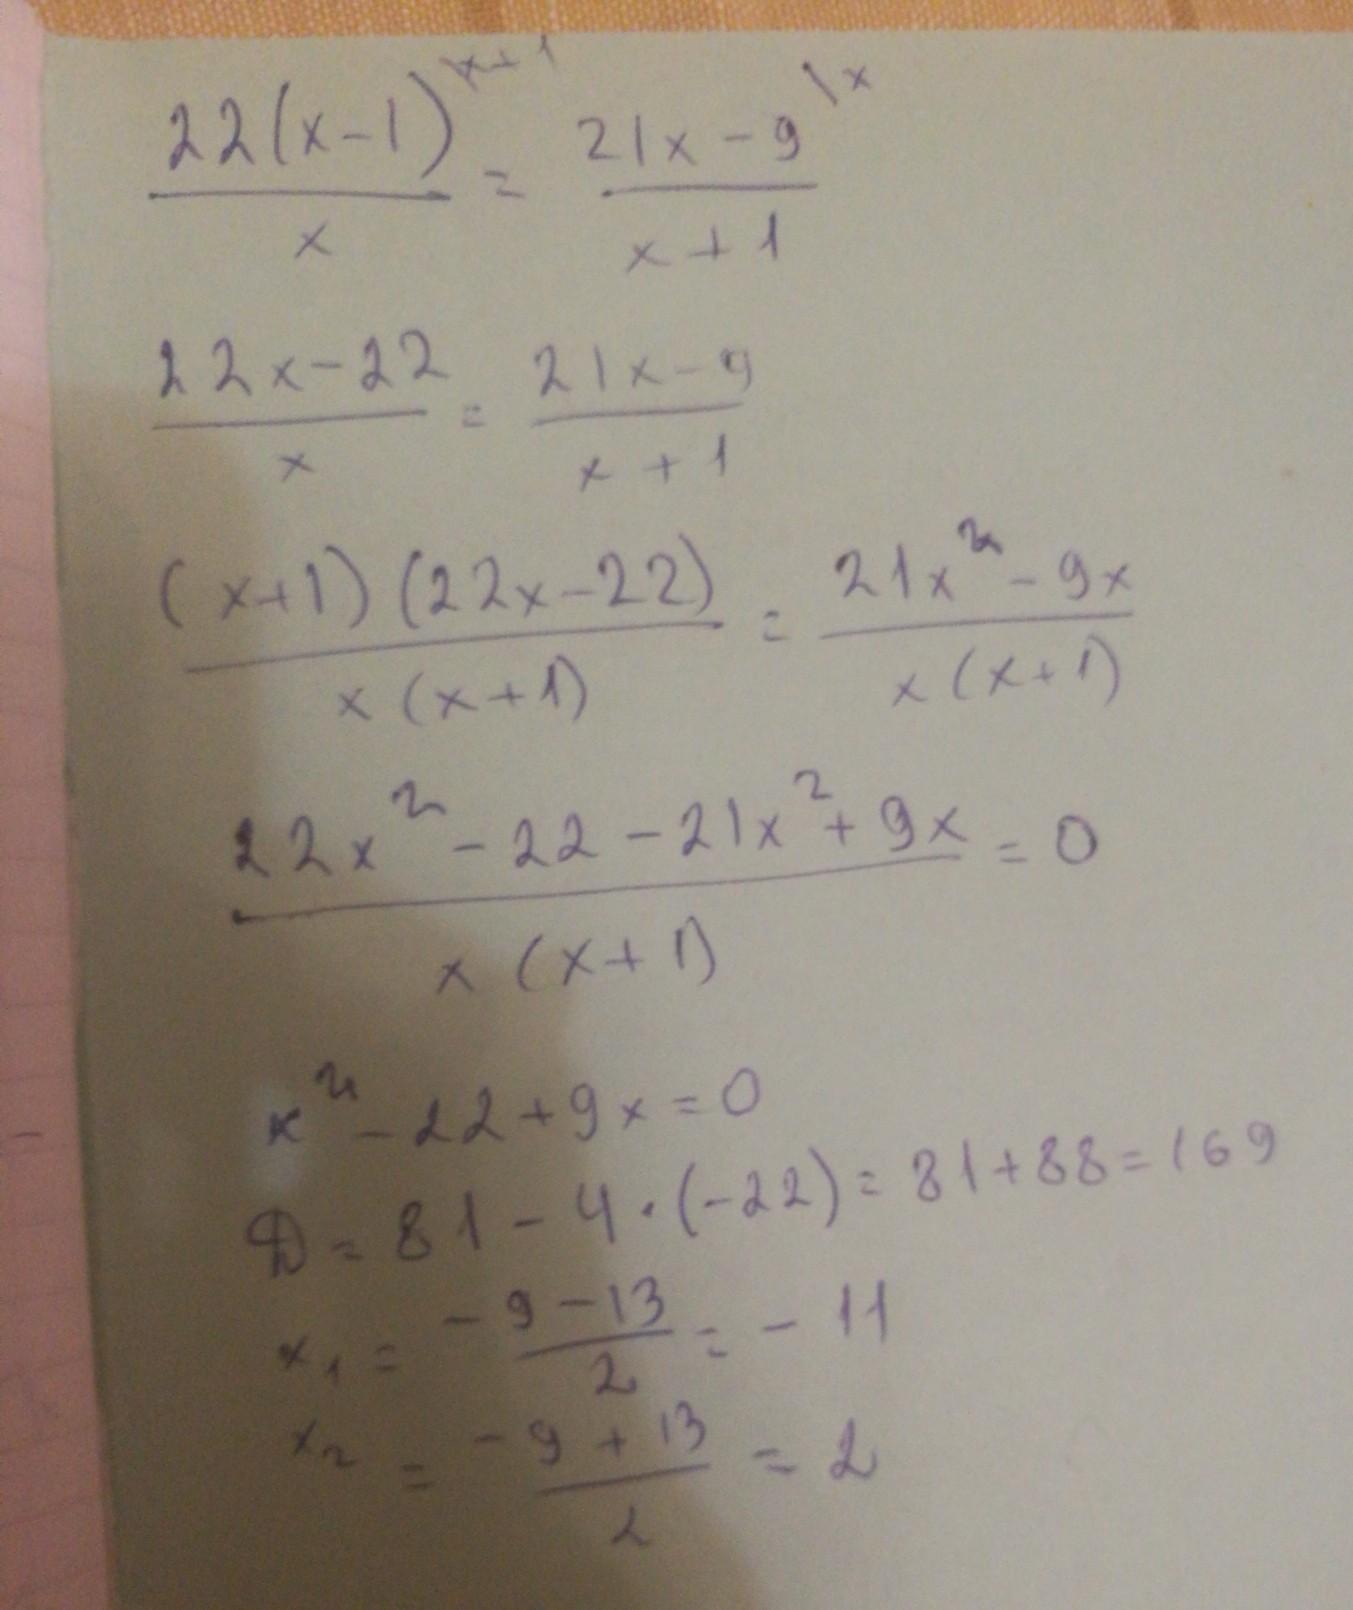 22(x-1)\x+1 / x = 21x-9\x / x+1
22x-22 / x = 21x-9 / x+1
(x+1)(22x-22) / x(x+1) = 21x²-9x / x(x+1)
22x²-22-21x²+9x / x(x+1) = 0
x²-22+9x=0
D=81-4·(-22)=81+88=169
x₁ = -9-13 / 2 = -11
x₂ = -9+13 / 2 = 2